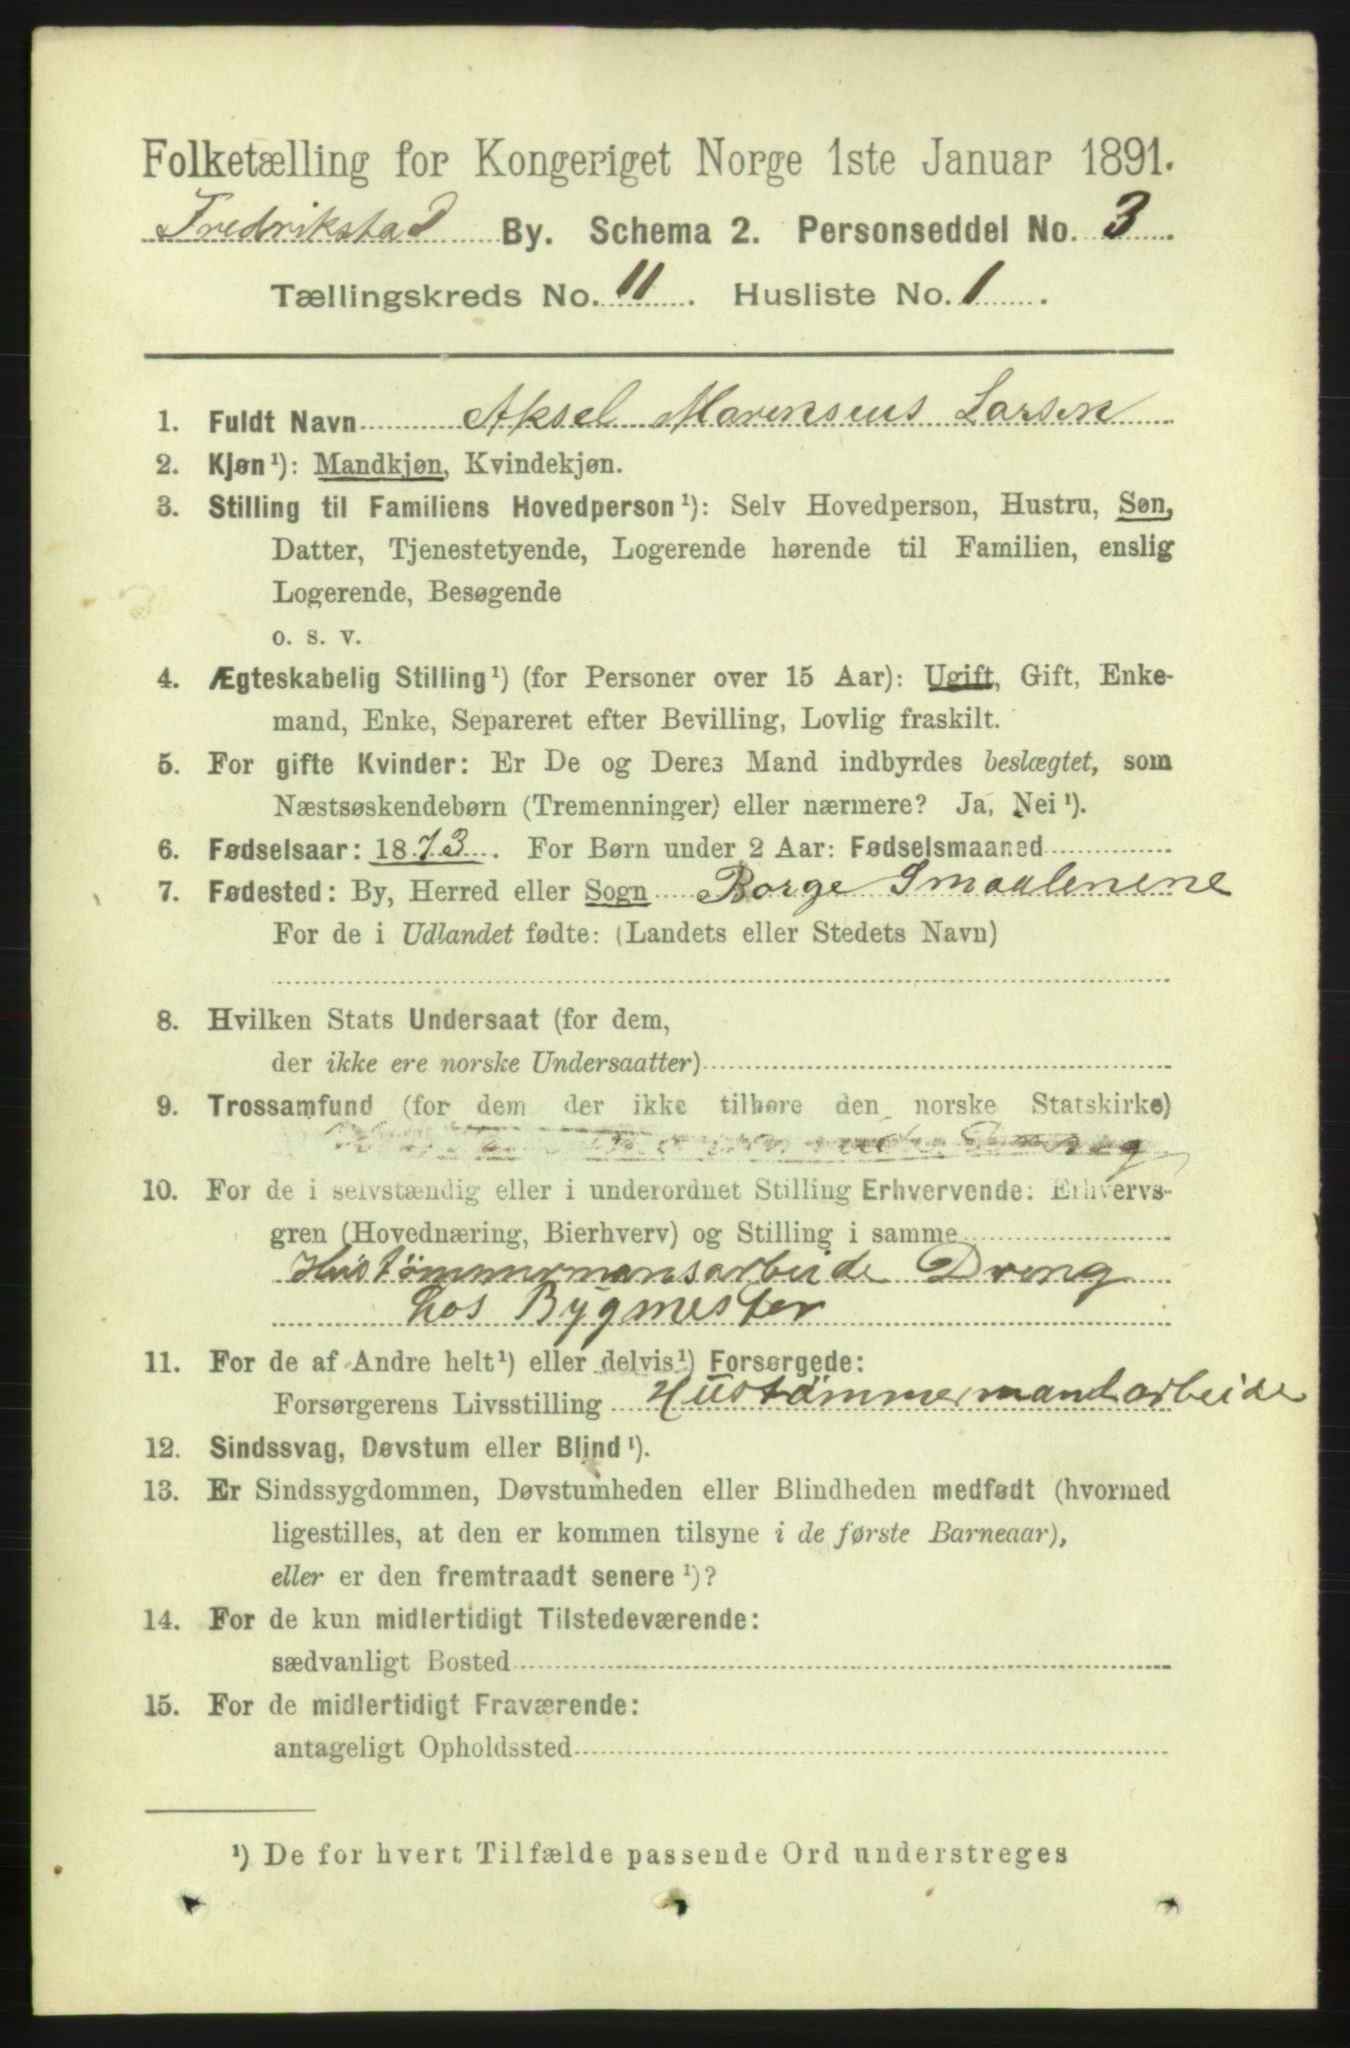 Folketælling for Kongeriget Norge 1ste Januar 1891.
Fredrikstad By. Schema 2. Personseddel No. 3
Tællingskreds No. 11. Husliste No. 1.
1. Fuldt Navn Aksel Marensius Larsen
2. Kjøn¹): Mandkjøn, Kvindekjøn.
3. Stilling til Familiens Hovedperson¹): Selv Hovedperson, Hustru, Søn,
Datter, Tjenestetyende, Logerende hørende til Familien, enslig
Logerende, Besøgende
o. s. v.
4. Ægteskabelig Stilling¹) (for Personer over 15 Aar): Ugift, Gift, Enke-
mand, Enke, Separeret efter Bevilling, Lovlig fraskilt.
5. For gifte Kvinder: Er De og Deres Mand indbyrdes beslægtet, som
Næstsøskendebørn (Tremenninger) eller nærmere? Ja, Nei¹).
6. Fødselsaar: 1873. For Børn under 2 Aar: Fødselsmaaned
7. Fødested: By, Herred eller Sogn Borge Smaalenene
For de i Udlandet fødte: (Landets eller Stedets Navn)
8. Hvilken Stats Undersaat (for dem,
der ikke ere norske Undersaatter)
9. Trossamfund (for dem der ikke tilhøre den norske Statskirke)
10. For de i selvstændig eller i underordnet Stilling Erhvervende: Erhvervs-
gren (Hovednæring, Bierhverv) og Stilling i samme
Hustømmermansarbeide Dreng
hos Bygmester
11. For de af Andre helt¹) eller delvis¹) Forsørgede:
Forsørgerens Livsstilling Hustømmermandarbeide
12. Sindssvag, Døvstum eller Blind¹).
13. Er Sindssygdommen, Døvstumheden eller Blindheden medfødt (hvormed
ligestilles, at den er kommen tilsyne i de første Barneaar),
eller er den fremtraadt senere¹)?
14. For de kun midlertidigt Tilstedeværende:
sædvanligt Bosted
15. For de midlertidigt Fraværende:
antageligt Opholdssted
¹) De for hvert Tilfælde passende Ord understreges